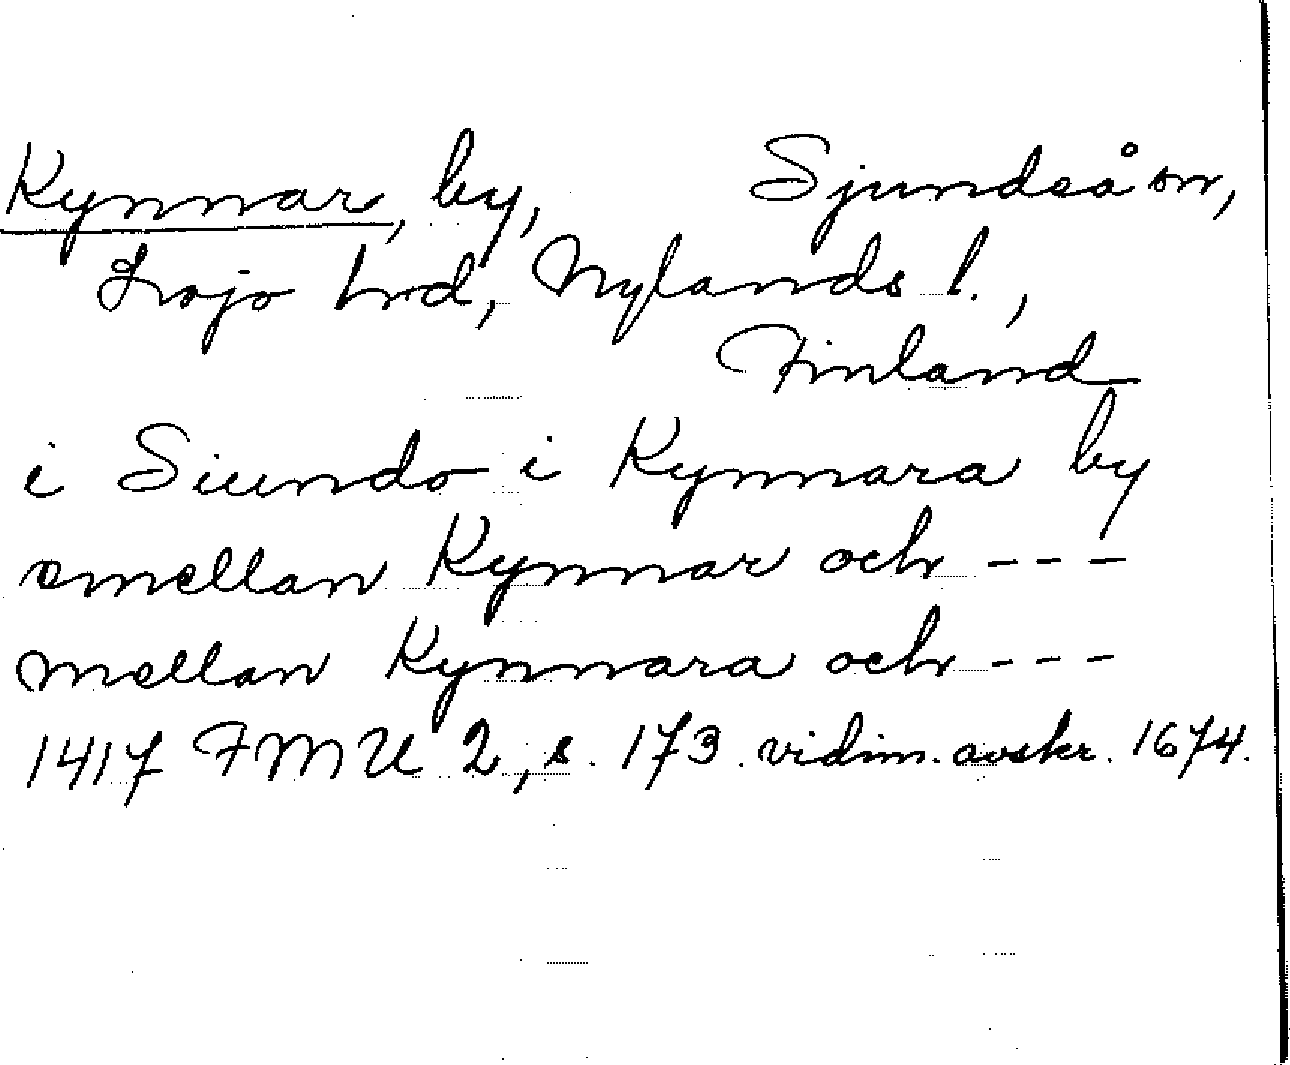 Kynnar, by, Sjundeå sn,
Lojo hrd, Nylands l.,
Finland
i Siundo i Kynnara by
emellan Kynnar och ---
mellan Kynnara och ---
1417 FMU 2, s. 173. vidim. avskr. 1674.